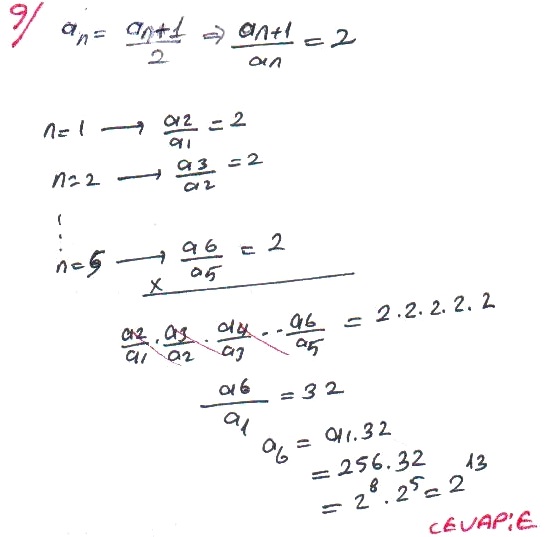 9/ aₙ = aₙ₊₁/2 ⇒ aₙ₊₁/aₙ = 2
n=1 → a₂/a₁ = 2
n=2 → a₃/a₂ = 2
⋮
n=5 → a₆/a₅ = 2
x
a₂/a₁ . a₃/a₂ . a₄/a₃ ... a₆/a₅ = 2.2.2.2.2
a₆/a₁ = 32
a₆ = a₁.32
= 256.32
= 2⁸.2⁵ = 2¹³
CEVAP:E